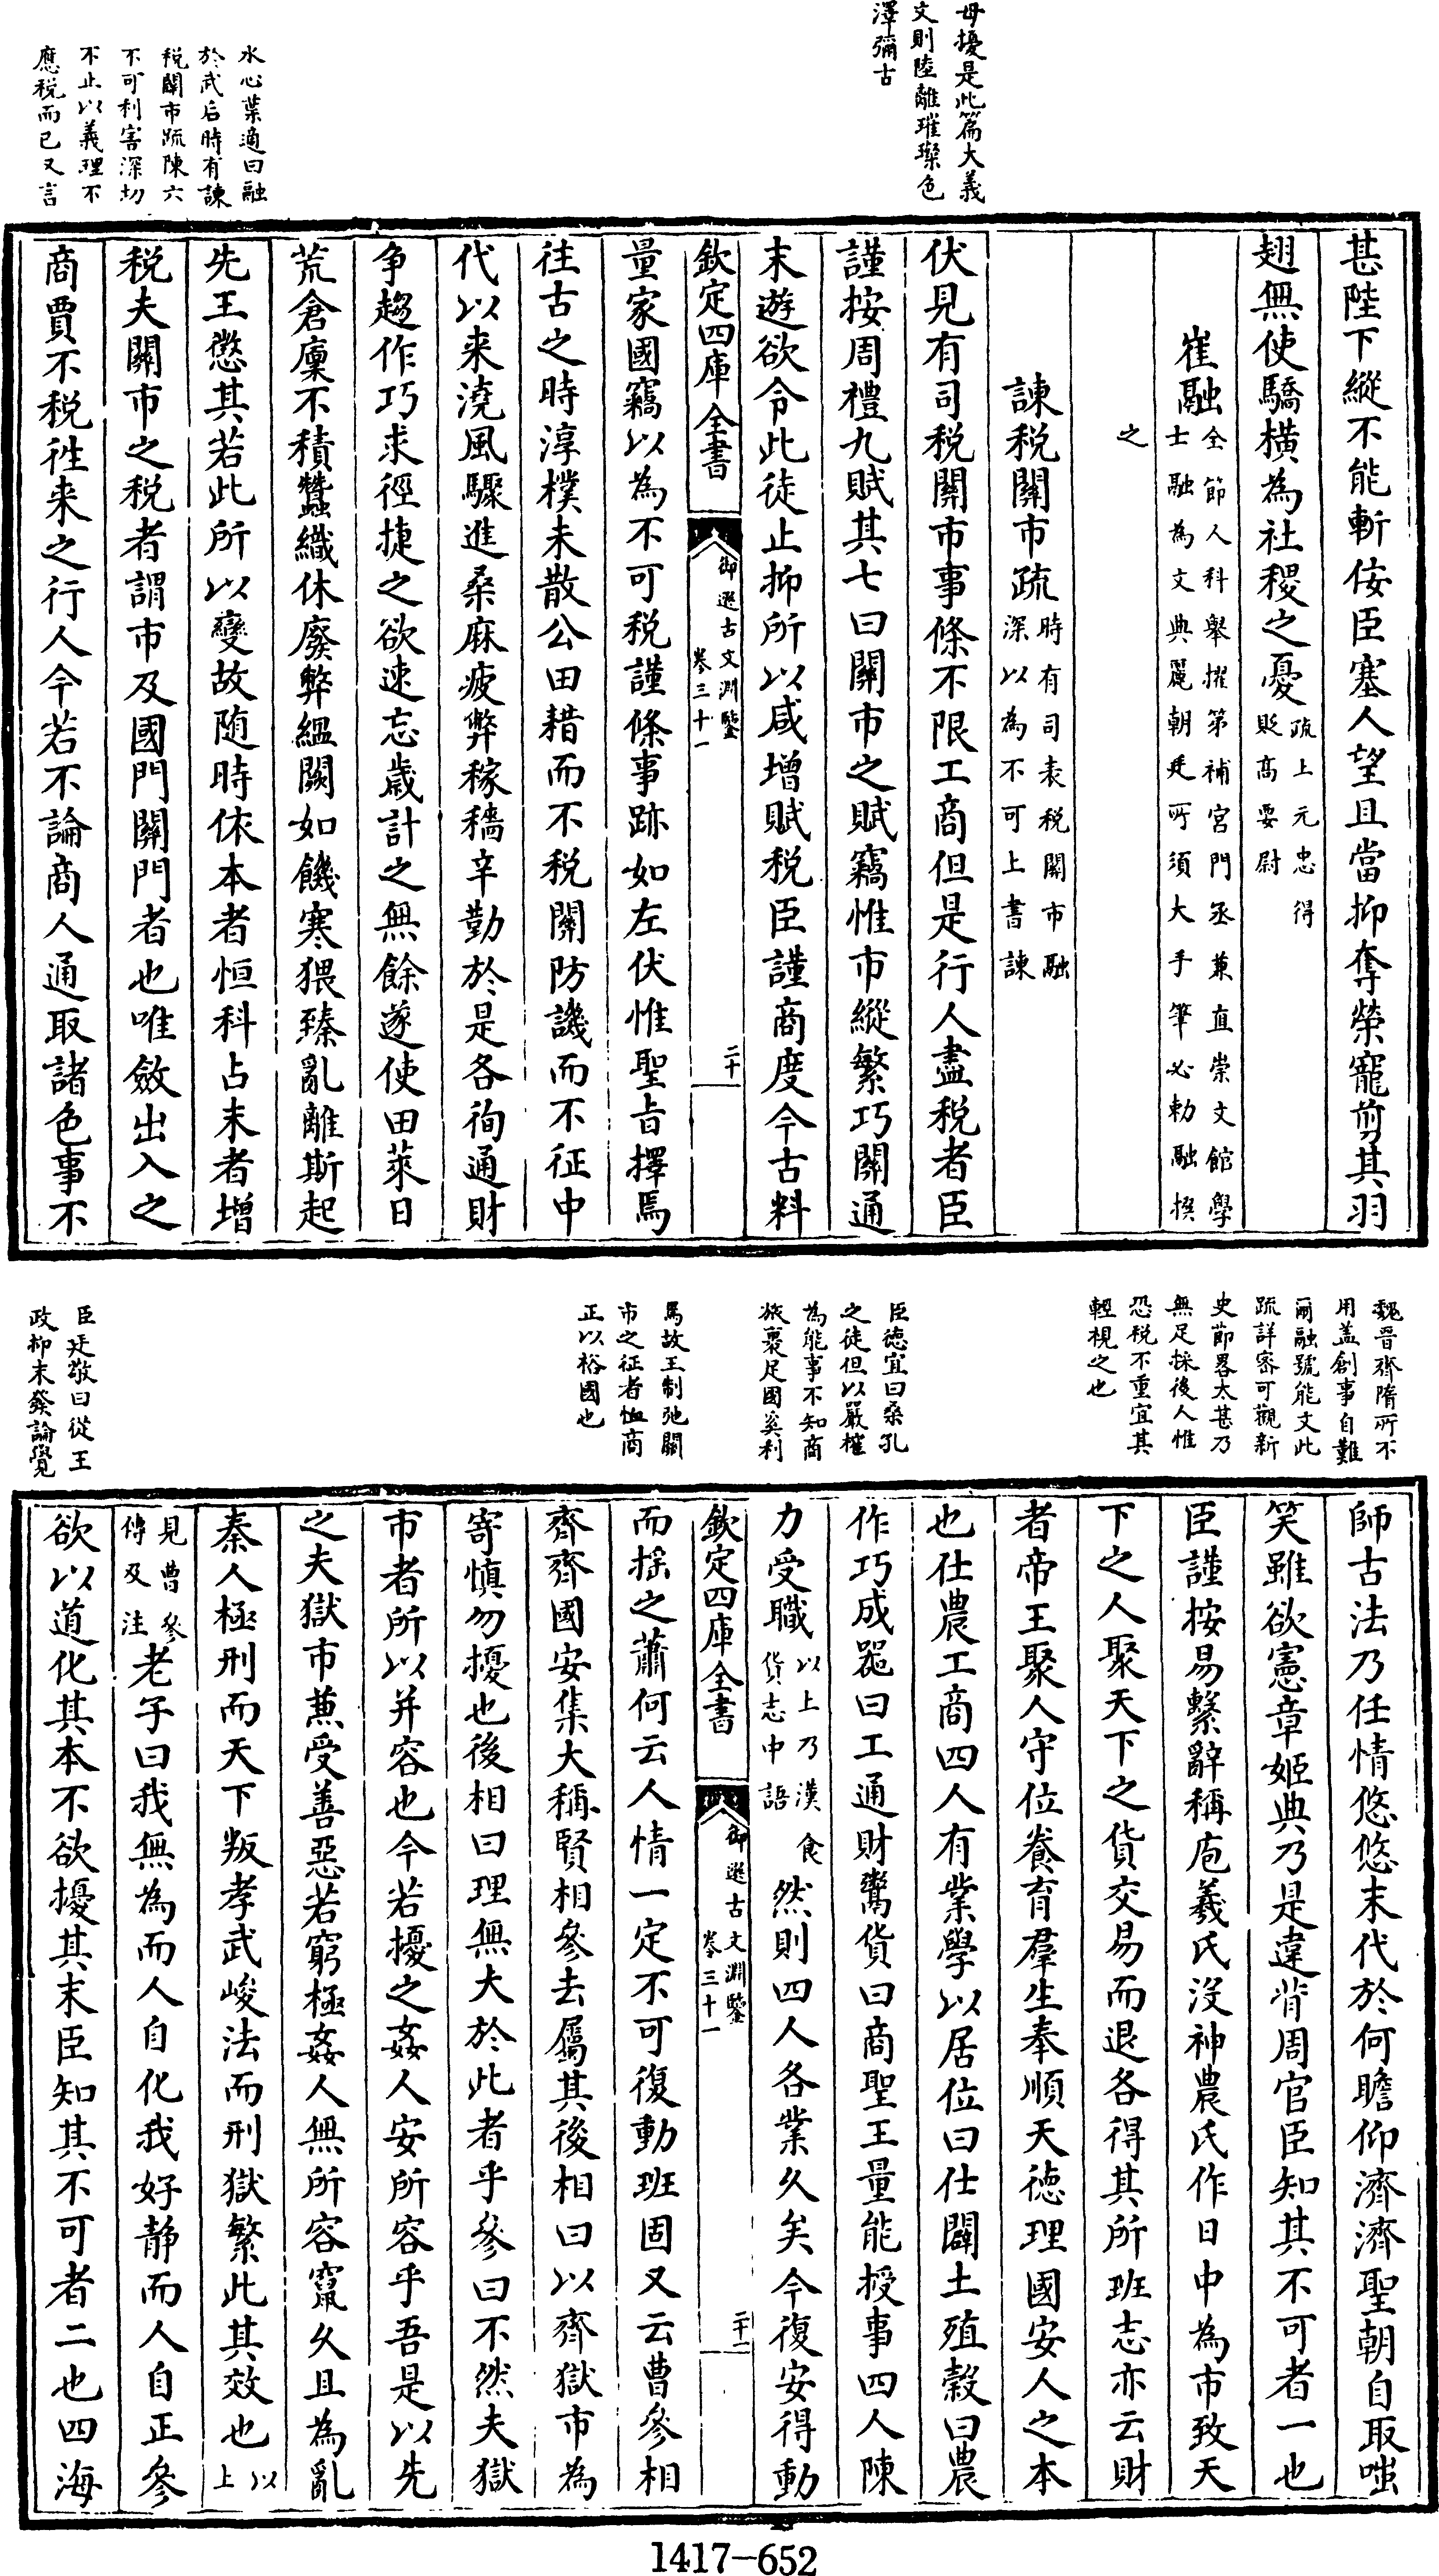 毋擾是此篇大義
文則陸離璀璨色
澤彌古
水心葉適曰融
於武后時有諫
税關市疏陳六
不可利害深切
不止以義理不
應税而已又言
甚陛下縱不能斬佞臣塞人望且當抑奪榮寵剪其羽
翅無使驕橫為社稷之憂疏上元忠得
貶高要尉
崔融全節人科舉擢第補宮門丞兼直崇文館學
士融為文典麗朝廷所須大手筆必勅融撰
之
諫税關市疏時有司表税關市融
深以為不可上書諫
伏見有司税關市事條不限工商但是行人盡税者臣
謹按周禮九賦其七曰關市之賦竊惟市縱繁巧關通
末遊欲令此徒止抑所以咸增賦税臣謹商度今古料
欽定四庫全書
御選古文淵鑒
卷三十一
二十
量家國竊以為不可税謹條事跡如左伏惟聖旨擇焉
往古之時淳樸未散公田耤而不税關防譏而不征中
代以来澆風驟進桑麻疲弊稼穡辛勤於是各徇通財
争趨作巧求徑捷之欲速忘歲計之無餘遂使田萊日
荒倉廩不積蠶織休廢弊緼闕如饑寒猥臻亂離斯起
先王懲其若此所以變故随時依本者恒科占末者增
税夫關市之税者謂市及國門關門者也唯斂出入之
商賈不税徃来之行人今若不論商人通取諸色事不
魏晋齊隋所不
用盖創事自難
爾融號能文此
疏詳密可觀新
史節畧太甚乃
無足採後人惟
恐税不重宜其
輕視之也
臣徳宜曰桑孔
之徒但以嚴榷
為能事不知商
旅裹足國奚利
焉故王制弛關
市之征者恤商
正以裕國也
臣廷敬曰從王
政抑末發論覺
師古法乃任情悠悠末代於何瞻仰濟濟聖朝自取嗤
笑雖欲憲章姬典乃是違背周官臣知其不可者一也
臣謹按易繫辭稱庖羲氏沒神農氏作日中為市致天
下之人聚天下之貨交易而退各得其所班志亦云財
者帝王聚人守位養育羣生奉順天徳理國安人之本
也仕農工商四人有業學以居位曰仕闢土殖穀曰農
作巧成噐曰工通財鬻貨曰商聖王量能授事四人陳
力受職以上乃漢食
貨志中語然則四人各業久矣今復安得動
欽定四庫全書
御選古文淵鑒
卷三十一
二十一
而揺之蕭何云人情一定不可復動班固又云曹參相
齊齊國安集大稱賢相參去屬其後相曰以齊獄市為
寄慎勿擾也後相曰理無大於此者乎參曰不然夫獄
市者所以并容也今若擾之姦人安所容乎吾是以先
之夫獄市兼受善惡若窮極姦人無所容竄久且為亂
秦人極刑而天下叛孝武峻法而刑獄繁此其效也以
上
見曹參
傳及注老子曰我無為而人自化我好静而人自正參
欲以道化其本不欲擾其末臣知其不可者二也四海
1417—652